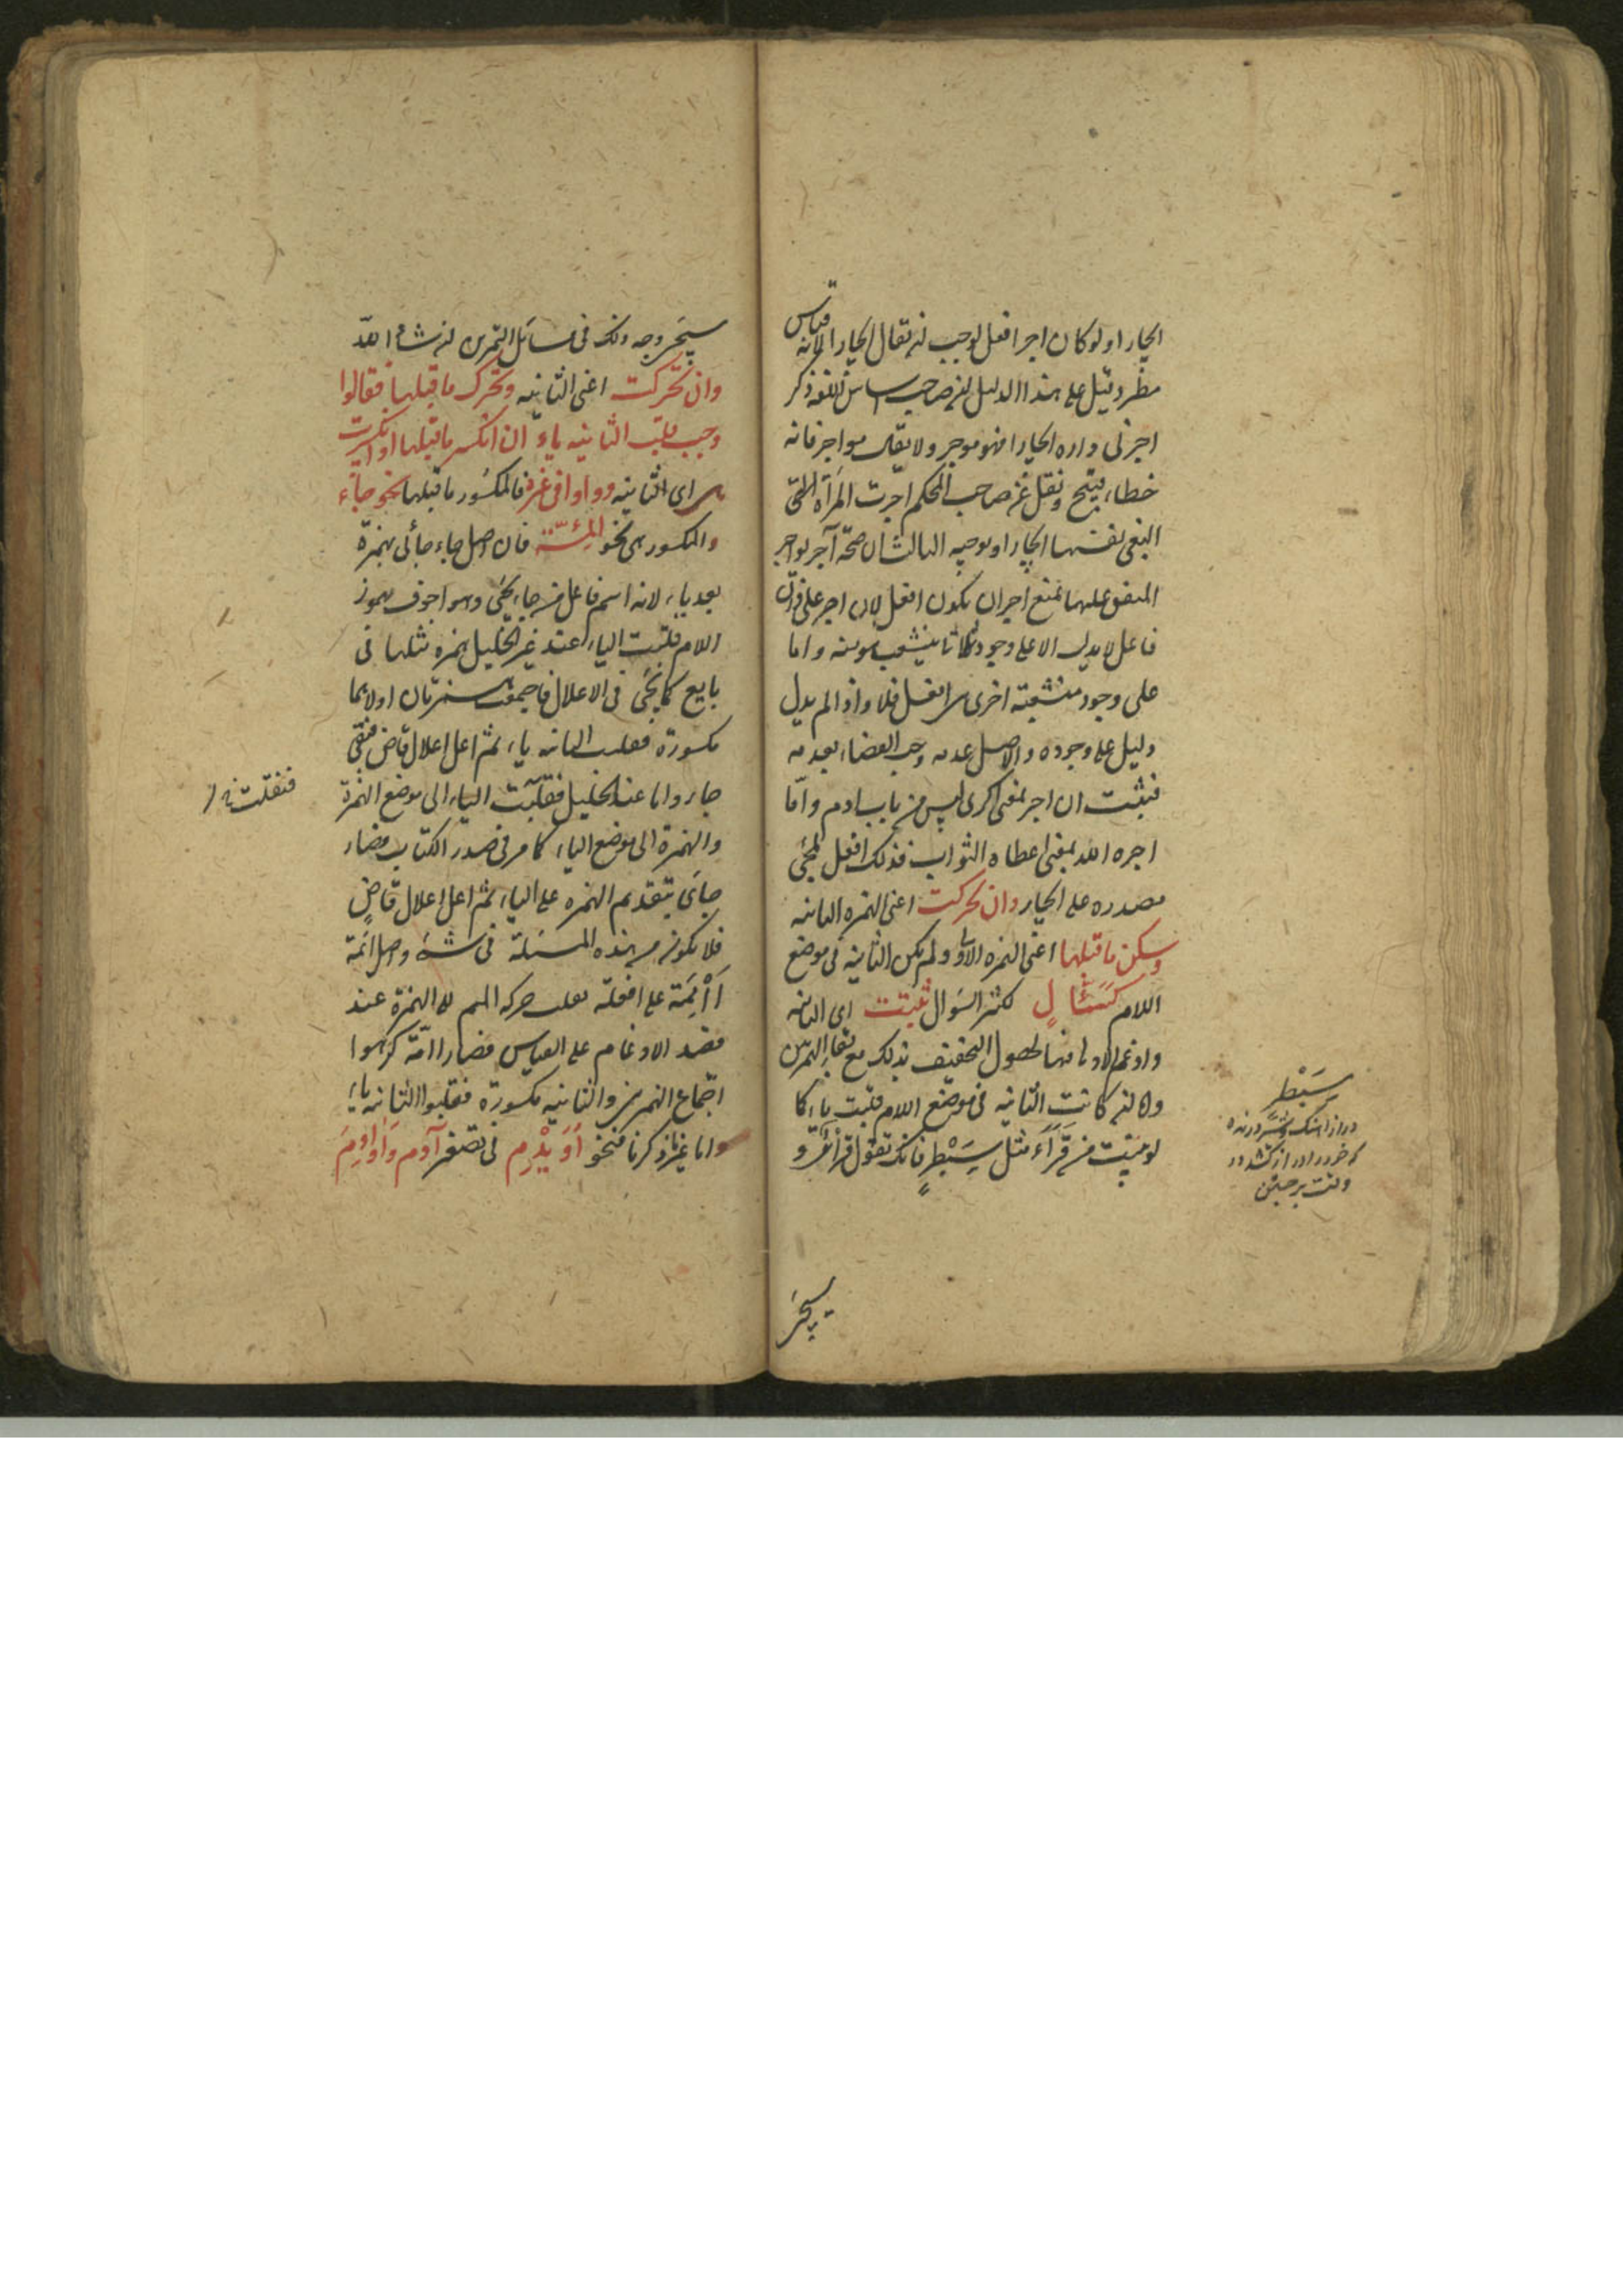 قياس
ايجارا ولو كان اجر افعل لوجب ان يقال ايجارا لانه
مطرد وقيل على هذا الدليل ان صاحب اساس اللغة ذكر
اجرنى داره ايجارا فهو موجر ولا يقال مواجر فانه
خطاء قبيح ونقل عن صاحب المحكم اجرت المرأة
البغى نفسها ايجارا وتوجيه الثالث ان صحة آجر يواجر
المتفق عليها تمنع اجر ان يكون افعل لان اجر على وزن
فاعل لا يدل الا على وجود ثلاثى ينشعب هو منه واما
على وجود منشعبة اخرى هى افعل فلا واذا لم يدل
دليل على وجوده والاصل عدمه وجب القضاء بعدمه
فثبت ان اجر بمعنى اكرى ليس من باب ادم واما
اجره الله بمعنى اعطاه الثواب فذلك افعل لمجئ
مصدره على ايجار وان تحركت اعنى الهمزة الثانية
وسكن ما قبلها اعنى الهمزة الاولى ولم تكن الثانية فى موضع
اللام كسئال لكثير السؤال ثبتت اى الثانية
وادغم الاولى فيها لحصول التخفيف بذلك مع بقاء الهمزتين
وان كانت الثانية فى موضع اللام قلبت ياء كما
لو بنيت من قرأ مثل سبطر فانك تقول قرأى و
سبطر
سيجئ
سيجئ وجه ذلك فى مسائل التمرين ان شاء الله
وان تحركت اعنى الثانية وتحرك ما قبلها فقالوا
وجب قلب الثانية ياء ان انكسر ما قبلها او انكسرت
هى اى الثانية وواوا فى غيره فالمكسور ما قبلها نحو جاء
والمكسورة هى نحو ائمة فان اصل جاء جائى بهمزة
بعد ياء لانه اسم فاعل من جاء يجئ وهو اجوف مهموز
اللام قلبت الياء عند غير الخليل همزة مثلها فى
بايع كما يجئ فى الاعلال فاجتمعت همزتان اولاهما
مكسورة فقلبت الثانية ياء ثم اعل اعلال قاض فبقى
جاء واما عند الخليل فقلبت الياء الى موضع الهمزة
فنقلت
والهمزة الى موضع الياء كما مر فى صدر الكتاب فصار
جائى بتقديم الهمزة على الياء ثم اعل اعلال قاض
فلا يكون من هذه المسئلة فى شئ واصل ائمة
أأممة على افعلة نقلت حركة الميم الى الهمزة عند
قصد الادغام على القياس فصار اامة كرهوا
اجتماع الهمزتين والثانية مكسورة فقلبوا الثانية ياء
واما غير ما ذكرنا فنحو أويدم فى تصغير آدم وأوادم